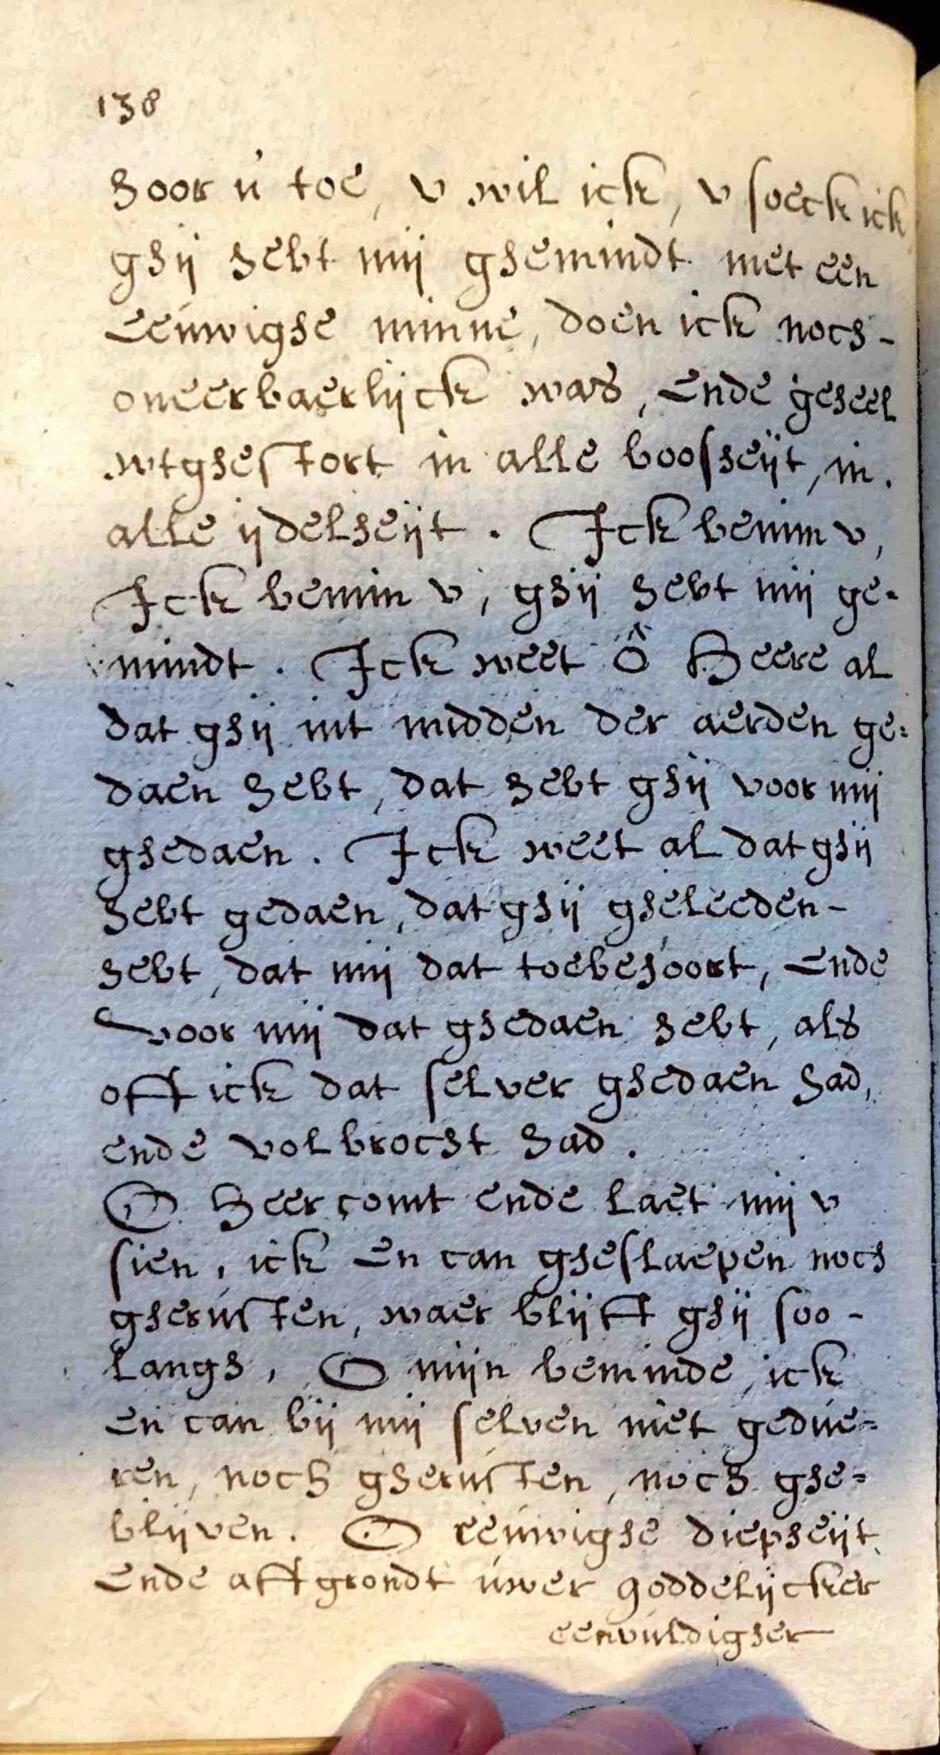 138
hoor ú toe, v wil ick, v soeck ick
ghij hebt mij ghemindt met een
eeúwighe minne, doen ick noch-
oneerbaerlijck was, ende geheel
wtghestort in alle boosheijt, in.
alle ijdelheijt. Ick bemin v,
Ick bemin v, ghij hebt mij ge-
mindt. Ick weet ô Heere al
dat ghij int midden der aerden ge=
daen hebt, dat hebt ghij voor mij
ghedaen. Ick weet al dat ghij
hebt gedaen, dat ghij gheleeden-
hebt, dat mij dat toebehoort, ende
voor mij dat ghedaen hebt, als
oft ick dat selver ghedaen had,
ende volbrocht had.
O Heer comt ende laet mij v
sien, ick en can gheslaepen noch
gherústen, waer blijft ghij soo-
langh, O mijn beminde, ick
en can bij mij selven niet gedúe=
ren, noch gherústen, noch ghe=
blijven. O eeúwighe diepheijt
ende aftgrondt úwer goddelijcker
eenvúldigher